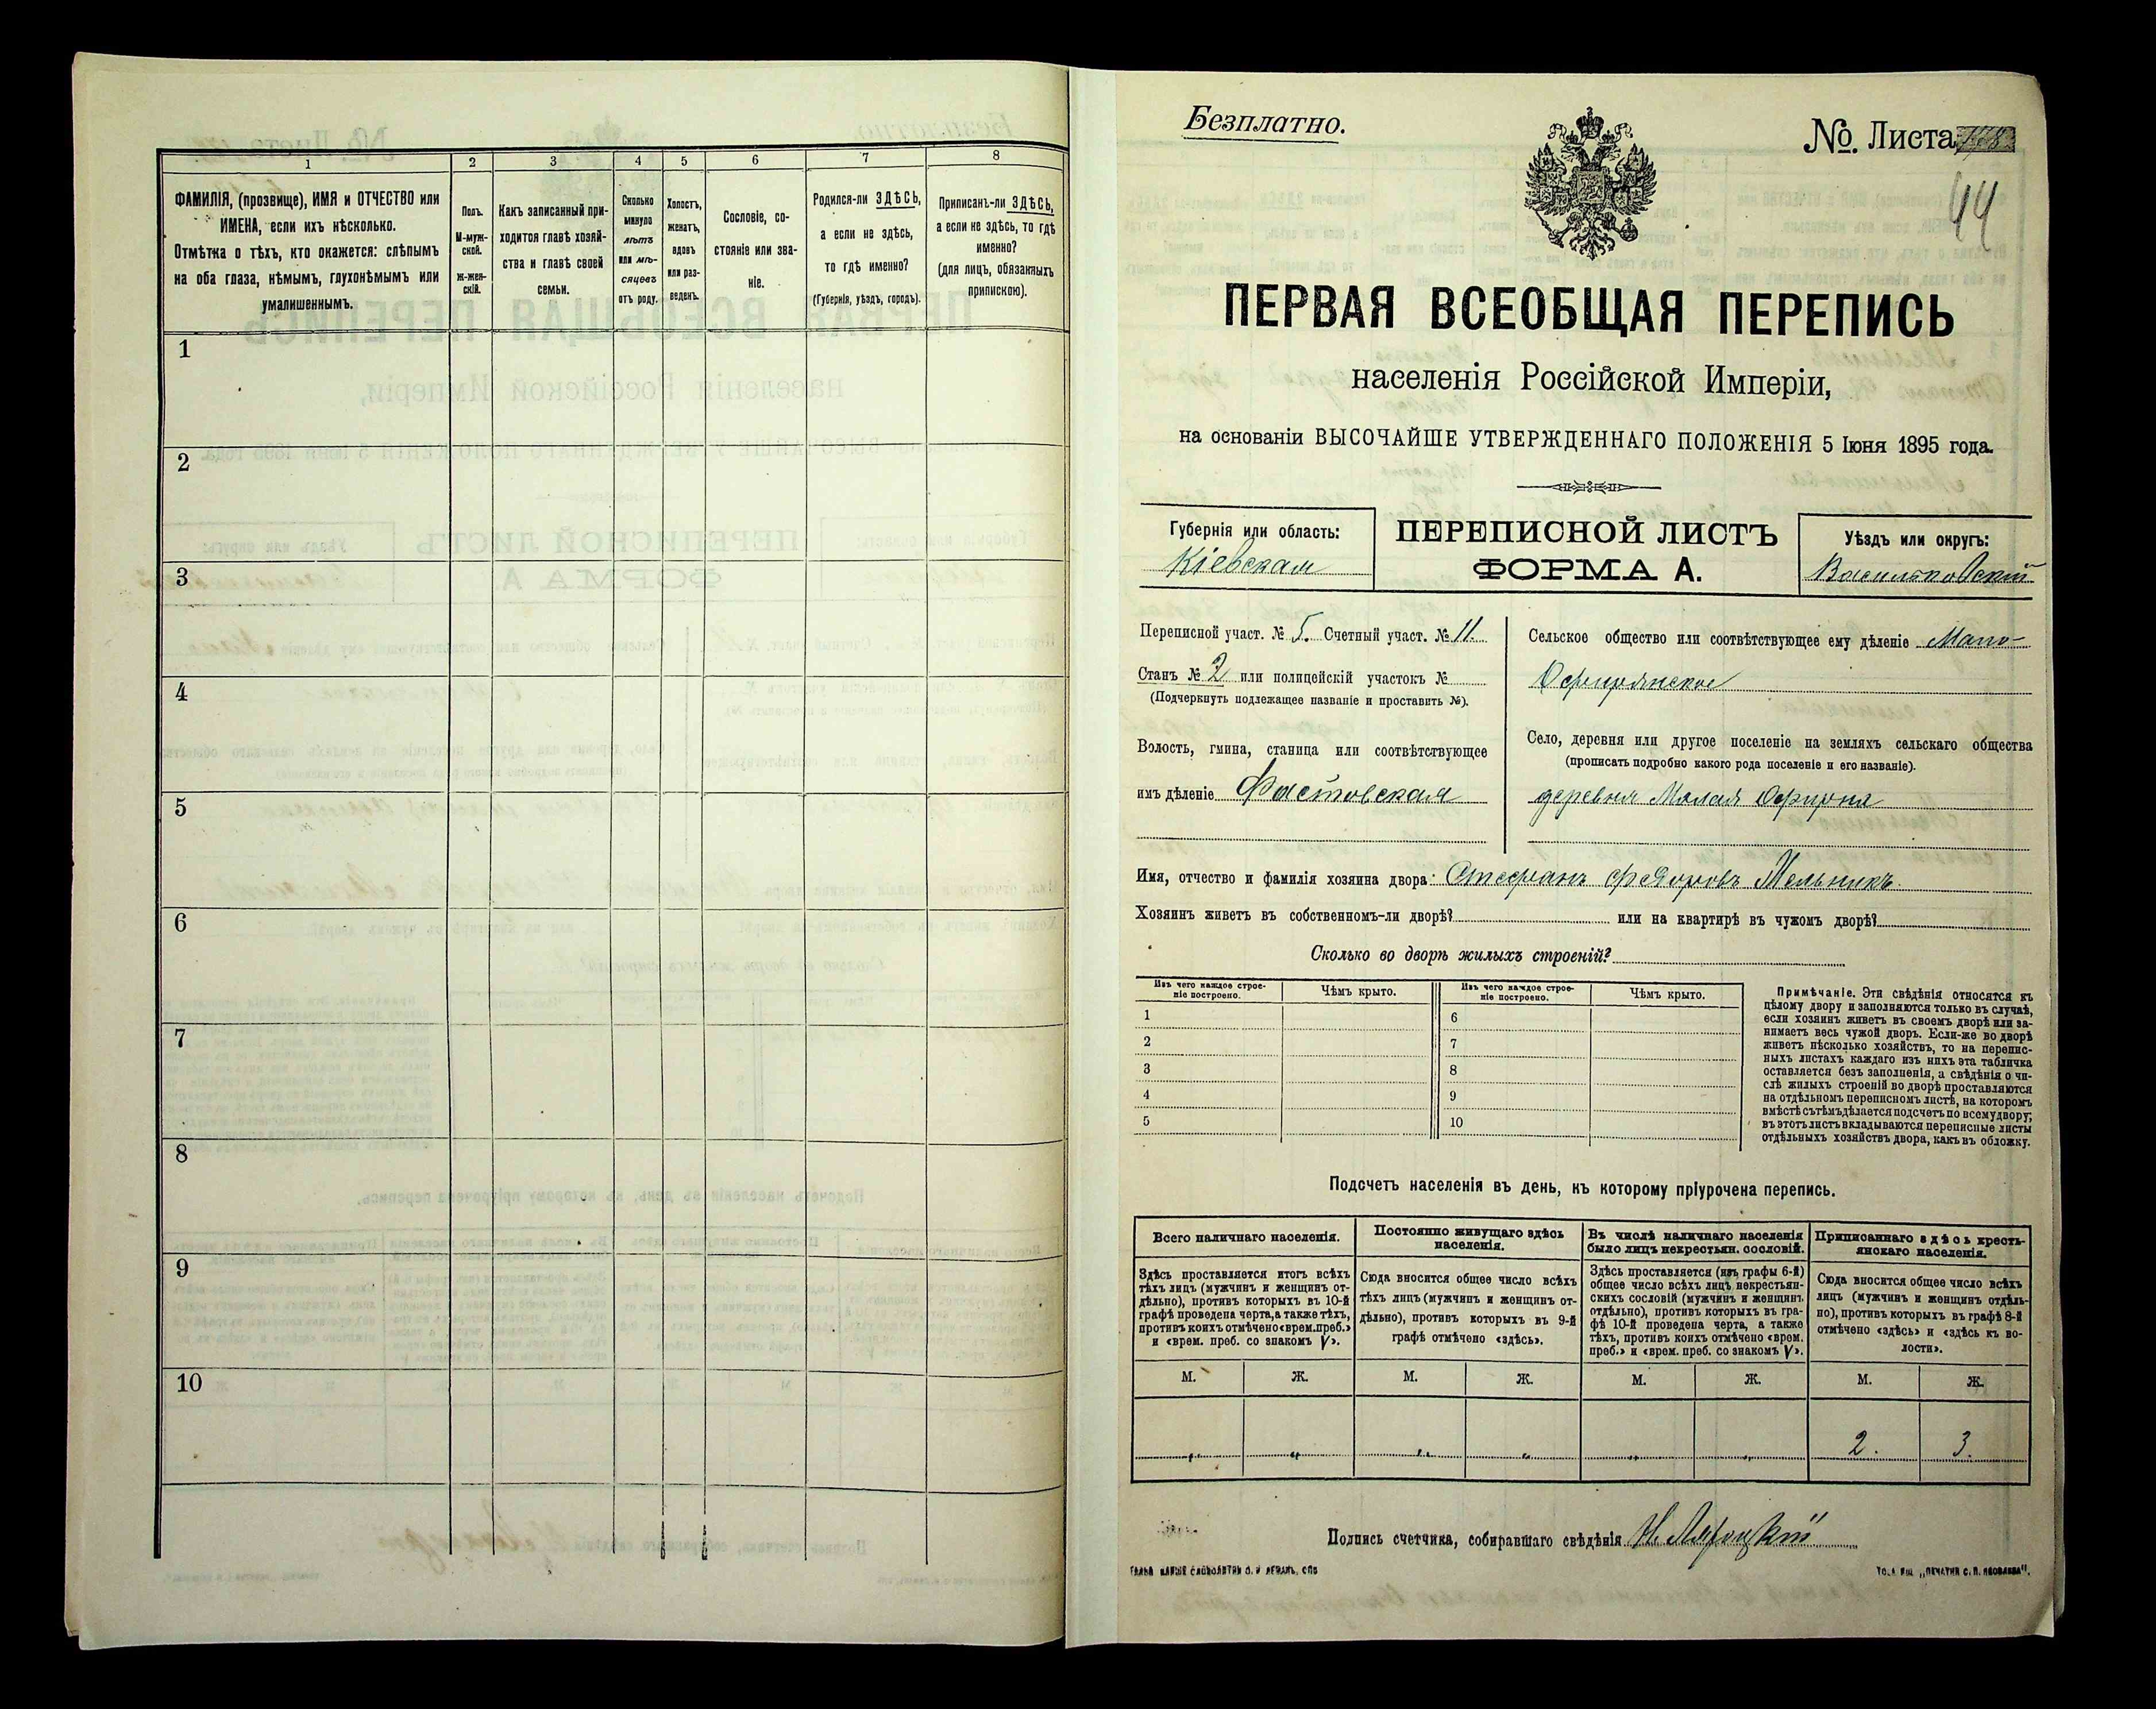 1 2 3 4 5 6 7 8
ФАМИЛІЯ, (прозвище), ИМЯ и ОТЧЕСТВО или
ИМЕНА, если ихъ нѣсколько.
Отмѣтка о тѣхъ, кто окажется: слѣпымъ
на оба глаза, нѣмымъ, глухонѣмымъ или
умалишеннымъ.
Полъ.
М-муж-
ской.
ж-жен-
скій.
Какъ записанный при-
ходится главѣ хозяй-
ства и главѣ своей
семьи.
Сколько
минуло
лѣтъ
или мѣ-
сяцевъ
отъ роду.
Холостъ,
женатъ,
вдовъ
или раз-
веденъ.
Сословіе, со-
стояніе или зва-
ніе.
Родился-ли ЗДѢСЬ,
а если не здѣсь,
то гдѣ именно?
(Губернія, уѣздъ, городъ).
Приписанъ-ли ЗДѢСЬ,
а если не здѣсь, то гдѣ
именно?
(для лицъ, обязанныхъ
припискою).
1
2
3
4
5
6
7
8
9
10
Безплатно.
№. Листа
44
ПЕРВАЯ ВСЕОБЩАЯ ПЕРЕПИСЬ
населенія Россійской Имперіи,
на основаніи ВЫСОЧАЙШЕ УТВЕРЖДЕННАГО ПОЛОЖЕНІЯ 5 Іюня 1895 года.
Губернія или область:
Кіевская
ПЕРЕПИСНОЙ ЛИСТЪ
ФОРМА А.
Уѣздъ или округъ:
Васильковскій
Переписной участ. № 5. Счетный участ. № 11.
Станъ № 2 или полицейскій участокъ №
(Подчеркнуть подлежащее названіе и проставить №).
Волость, гмина, станица или соотвѣтствующее
имъ дѣленіе Фастовская
Сельское общество или соотвѣтствующее ему дѣленіе Мало-
Офирнянское
Село, деревня или другое поселеніе на земляхъ сельскаго общества
(прописать подробно какого рода поселеніе и его названіе).
деревня Малая Офирна
Имя, отчество и фамилія хозяина двора: Стефанъ Федоровъ Мельникъ
Хозяинъ живетъ въ собственномъ-ли дворѣ? или на квартирѣ въ чужомъ дворѣ?
Сколько во дворѣ жилыхъ строеній?
Изъ чего каждое строе-
ніе построено.
Чѣмъ крыто.
Изъ чего каждое строе-
ніе построено.
Чѣмъ крыто.
1 6
2 7
3 8
4 9
5 10
Примѣчаніе. Эти свѣдѣнія относятся къ
цѣлому двору и заполняются только въ случаѣ,
если хозяинъ живетъ въ своемъ дворѣ или за-
нимаетъ весь чужой дворъ. Если-же во дворѣ
живетъ нѣсколько хозяйствъ, то на перепис-
ныхъ листахъ каждаго изъ нихъ эта табличка
оставляется безъ заполненія, а свѣдѣнія о чи-
слѣ жилыхъ строеній во дворѣ проставляются
на отдѣльномъ переписномъ листѣ, на которомъ
вмѣстѣ съ тѣмъ дѣлается подсчетъ по всему двору;
въ этотъ листъ вкладываются переписные листы
отдѣльныхъ хозяйствъ двора, какъ въ обложку.
Подсчетъ населенія въ день, къ которому пріурочена перепись.
Всего наличнаго населенія.
Здѣсь проставляется итогъ всѣхъ
тѣхъ лицъ (мужчинъ и женщинъ от-
дѣльно), противъ которыхъ въ 10-й
графѣ проведена черта, а также тѣхъ,
противъ коихъ отмѣчено «врем. преб.»
и «врем. преб. со знакомъ V».
Постоянно живущаго здѣсь
населенія.
Сюда вносится общее число всѣхъ
тѣхъ лицъ (мужчинъ и женщинъ от-
дѣльно), противъ которыхъ въ 9-й
графѣ отмѣчено «здѣсь».
Въ числѣ наличнаго населенія
было лицъ некрестьян. сословій.
Здѣсь проставляется (изъ графы 6-й)
общее число всѣхъ лицъ некрестьян-
скихъ сословій (мужчинъ и женщинъ
отдѣльно), противъ которыхъ въ гра-
фѣ 10-й проведена черта, а также
тѣхъ, противъ коихъ отмѣчено «врем.
преб.» и «врем. преб. со знакомъ V».
Приписаннаго здѣсь кресть-
янскаго населенія.
Сюда вносится общее число всѣхъ
лицъ (мужчинъ и женщинъ отдѣль-
но), противъ которыхъ въ графѣ 8-й
отмѣчено «здѣсь» и «здѣсь къ во-
лости».
М. Ж. М. Ж. М. Ж. М. Ж.
„ „ „ „ „ „ 2. 3.
Подпись счетчика, собиравшаго свѣдѣнія